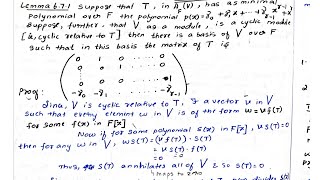 Lemma 6.7.1 Suppose that T, in A_F(V), has as minimal
polynomial over F the polynomial p(x) = γ₀ + γ₁x + ... + γ_{r-1}x^{r-1} + x^r
Suppose, further, that V as a module, is a cyclic module
[i.e, cyclic relative to T] then there is a basis of V over F
such that in this basis the matrix of T is
0 1 0 ... 0
0 0 1 ... 0
0 0 0 ... 1
-γ₀ -γ₁ ... -γ_{r-1}
Proof:
Since, V is cyclic relative to T, ∃ a vector v in V
such that every element w in V is of the form w = v f(T)
for some f(x) in F[x].
Now if for some polynomial s(x) in F[x], v s(T) = 0
then for any w in V, w s(T) = (v f(T)) · s(T)
= v s(T) · f(T)
= 0
Thus, s(T) annihilates all of V & so s(T) = 0
maps to zero